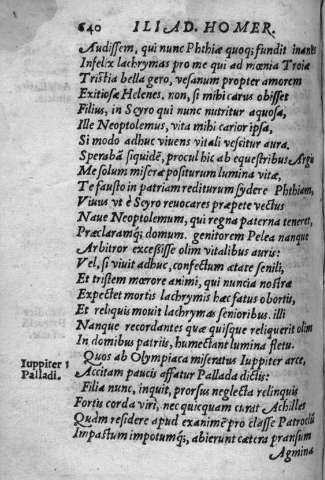 640 ILIAD. HOMER.
Audissem, qui nunc Phthiæ quoq; fundit inanes
Infelix lachrymas pro me qui ad mœnia Troiæ
Tristia bella gero, vesanum propter amorem
Exitiosæ Helenes. non, si mihi carus obisset
Filius, in Scyro qui nunc nutritur aquosa,
Ille Neoptolemus, vita mihi carior ipsa,
Si modo adhuc viuens vitali vescitur aura.
Sperabã siquidẽ, procul hic ab equestribus Argis
Me solum miseræ positurum lumina vitæ,
Te fausto in patriam rediturum sydere Phthiam,
Viuus vt è Scyro reuocares præpete vectus
Naue Neoptolemum, qui regna paterna teneret,
Præclaramq; domum. genitorem Pelea nanque
Arbitror excessisse olim vitalibus auris:
Vel, si viuit adhuc, confectum ætate senili,
Et tristem mœrore animi, qui nuncia nostra
Expectet mortis lachrymis hæc fatus obortis,
Et reliquis mouit lachrymas senioribus. illi
Nanque recordantes quæ quisque reliquerit olim
In domibus patriis, humectant lumina fletu.
Quos ab Olympiaca miseratus Iuppiter arce,
Iuppiter
Palladi.
Accitam paucis affatur Pallada dictis:
Filia nunc, inquit, prorsus neglecta relinquis
Fortis corda viri, nec quicquam curat Achilles
Quàm residere apud exanimẽ pro classe Patroclũ
Impastum impotumq;, abierunt cætera pransum
Agmina